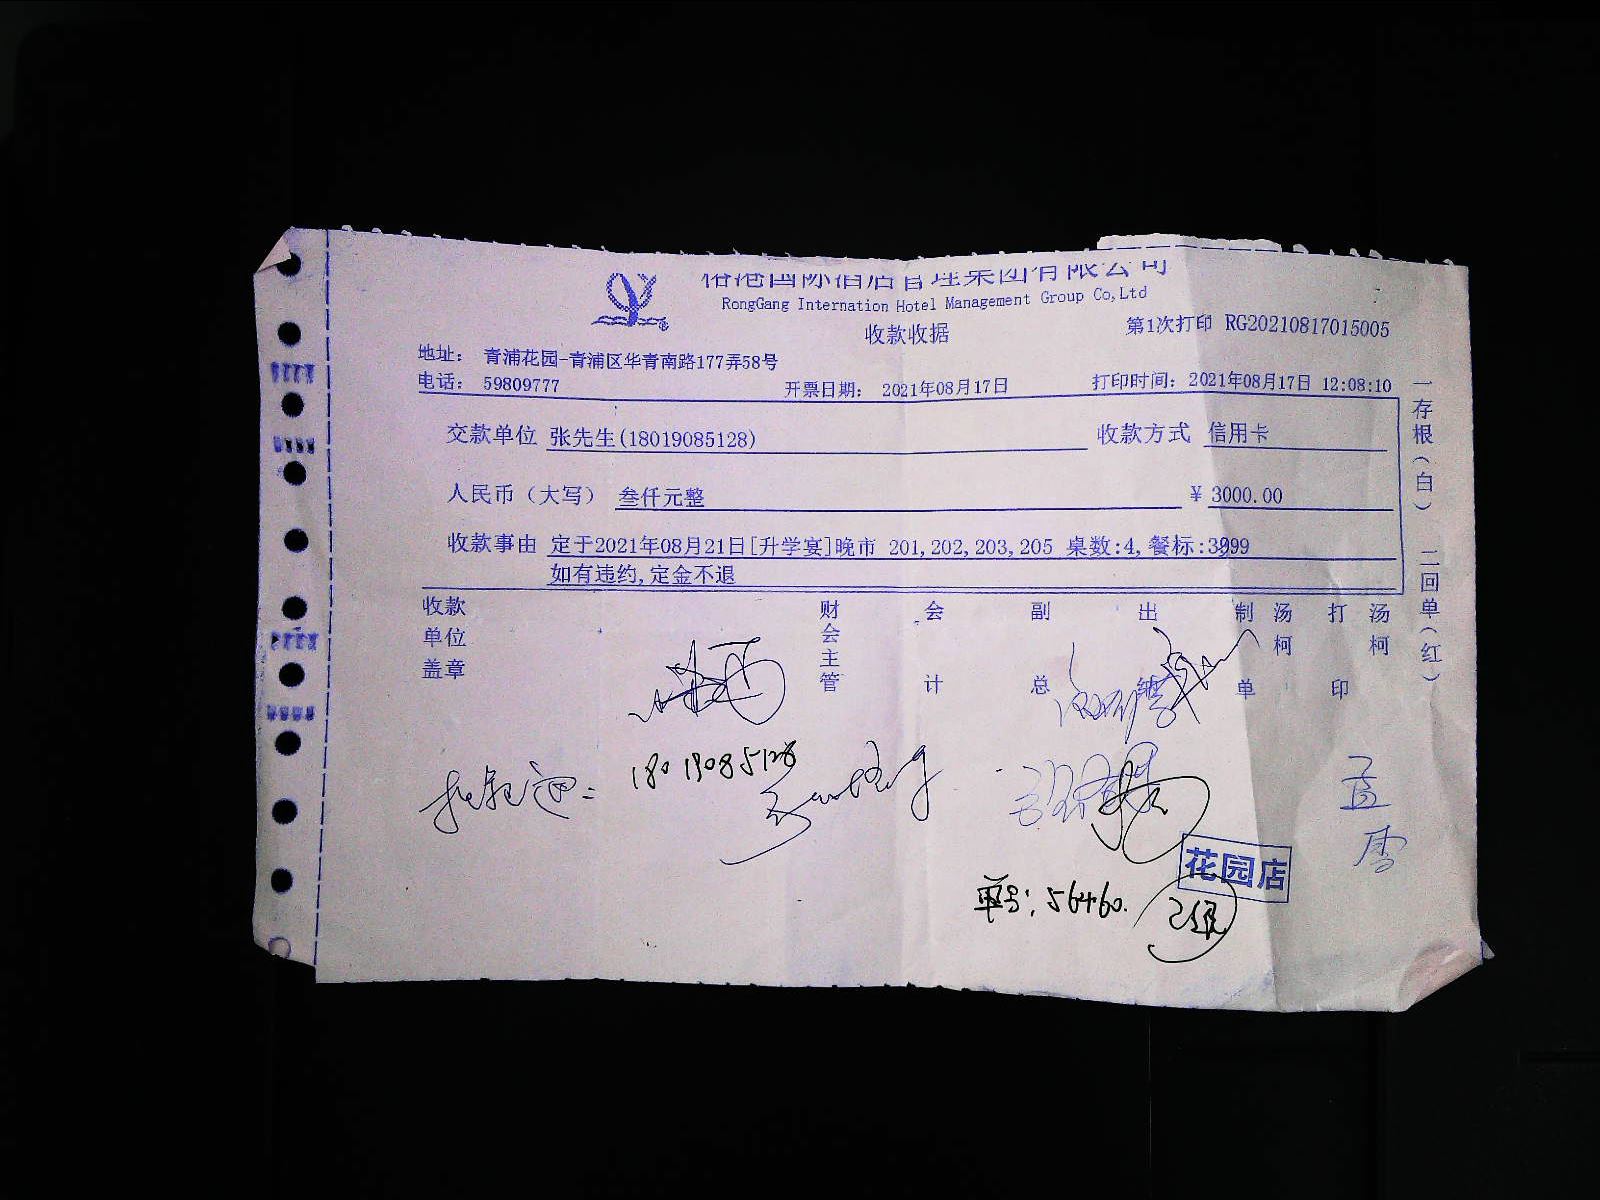 国际酒店管理集团有限公司
RongGang Internation Hotel Management Group Co,Ltd
收款收据
第1次打印 RG20210817015005
地址： 青浦花园-青浦区华青南路177弄58号
电话： 59809777
开票日期： 2021年08月17日
打印时间： 2021年08月17日 12:08:10
交款单位 张先生(18019085128)
收款方式 信用卡
人民币（大写） 叁仟元整
¥ 3000.00
收款事由 定于2021年08月21日[升学宴]晚市 201,202,203,205 桌数:4,餐标:3999
如有违约,定金不退
收款单位盖章
财会主管
会计
副总
出纳
制单
汤柯
打印
汤柯
一存根（白） 二回单（红）
18019085128
孟雷
花园店
单号：56460.